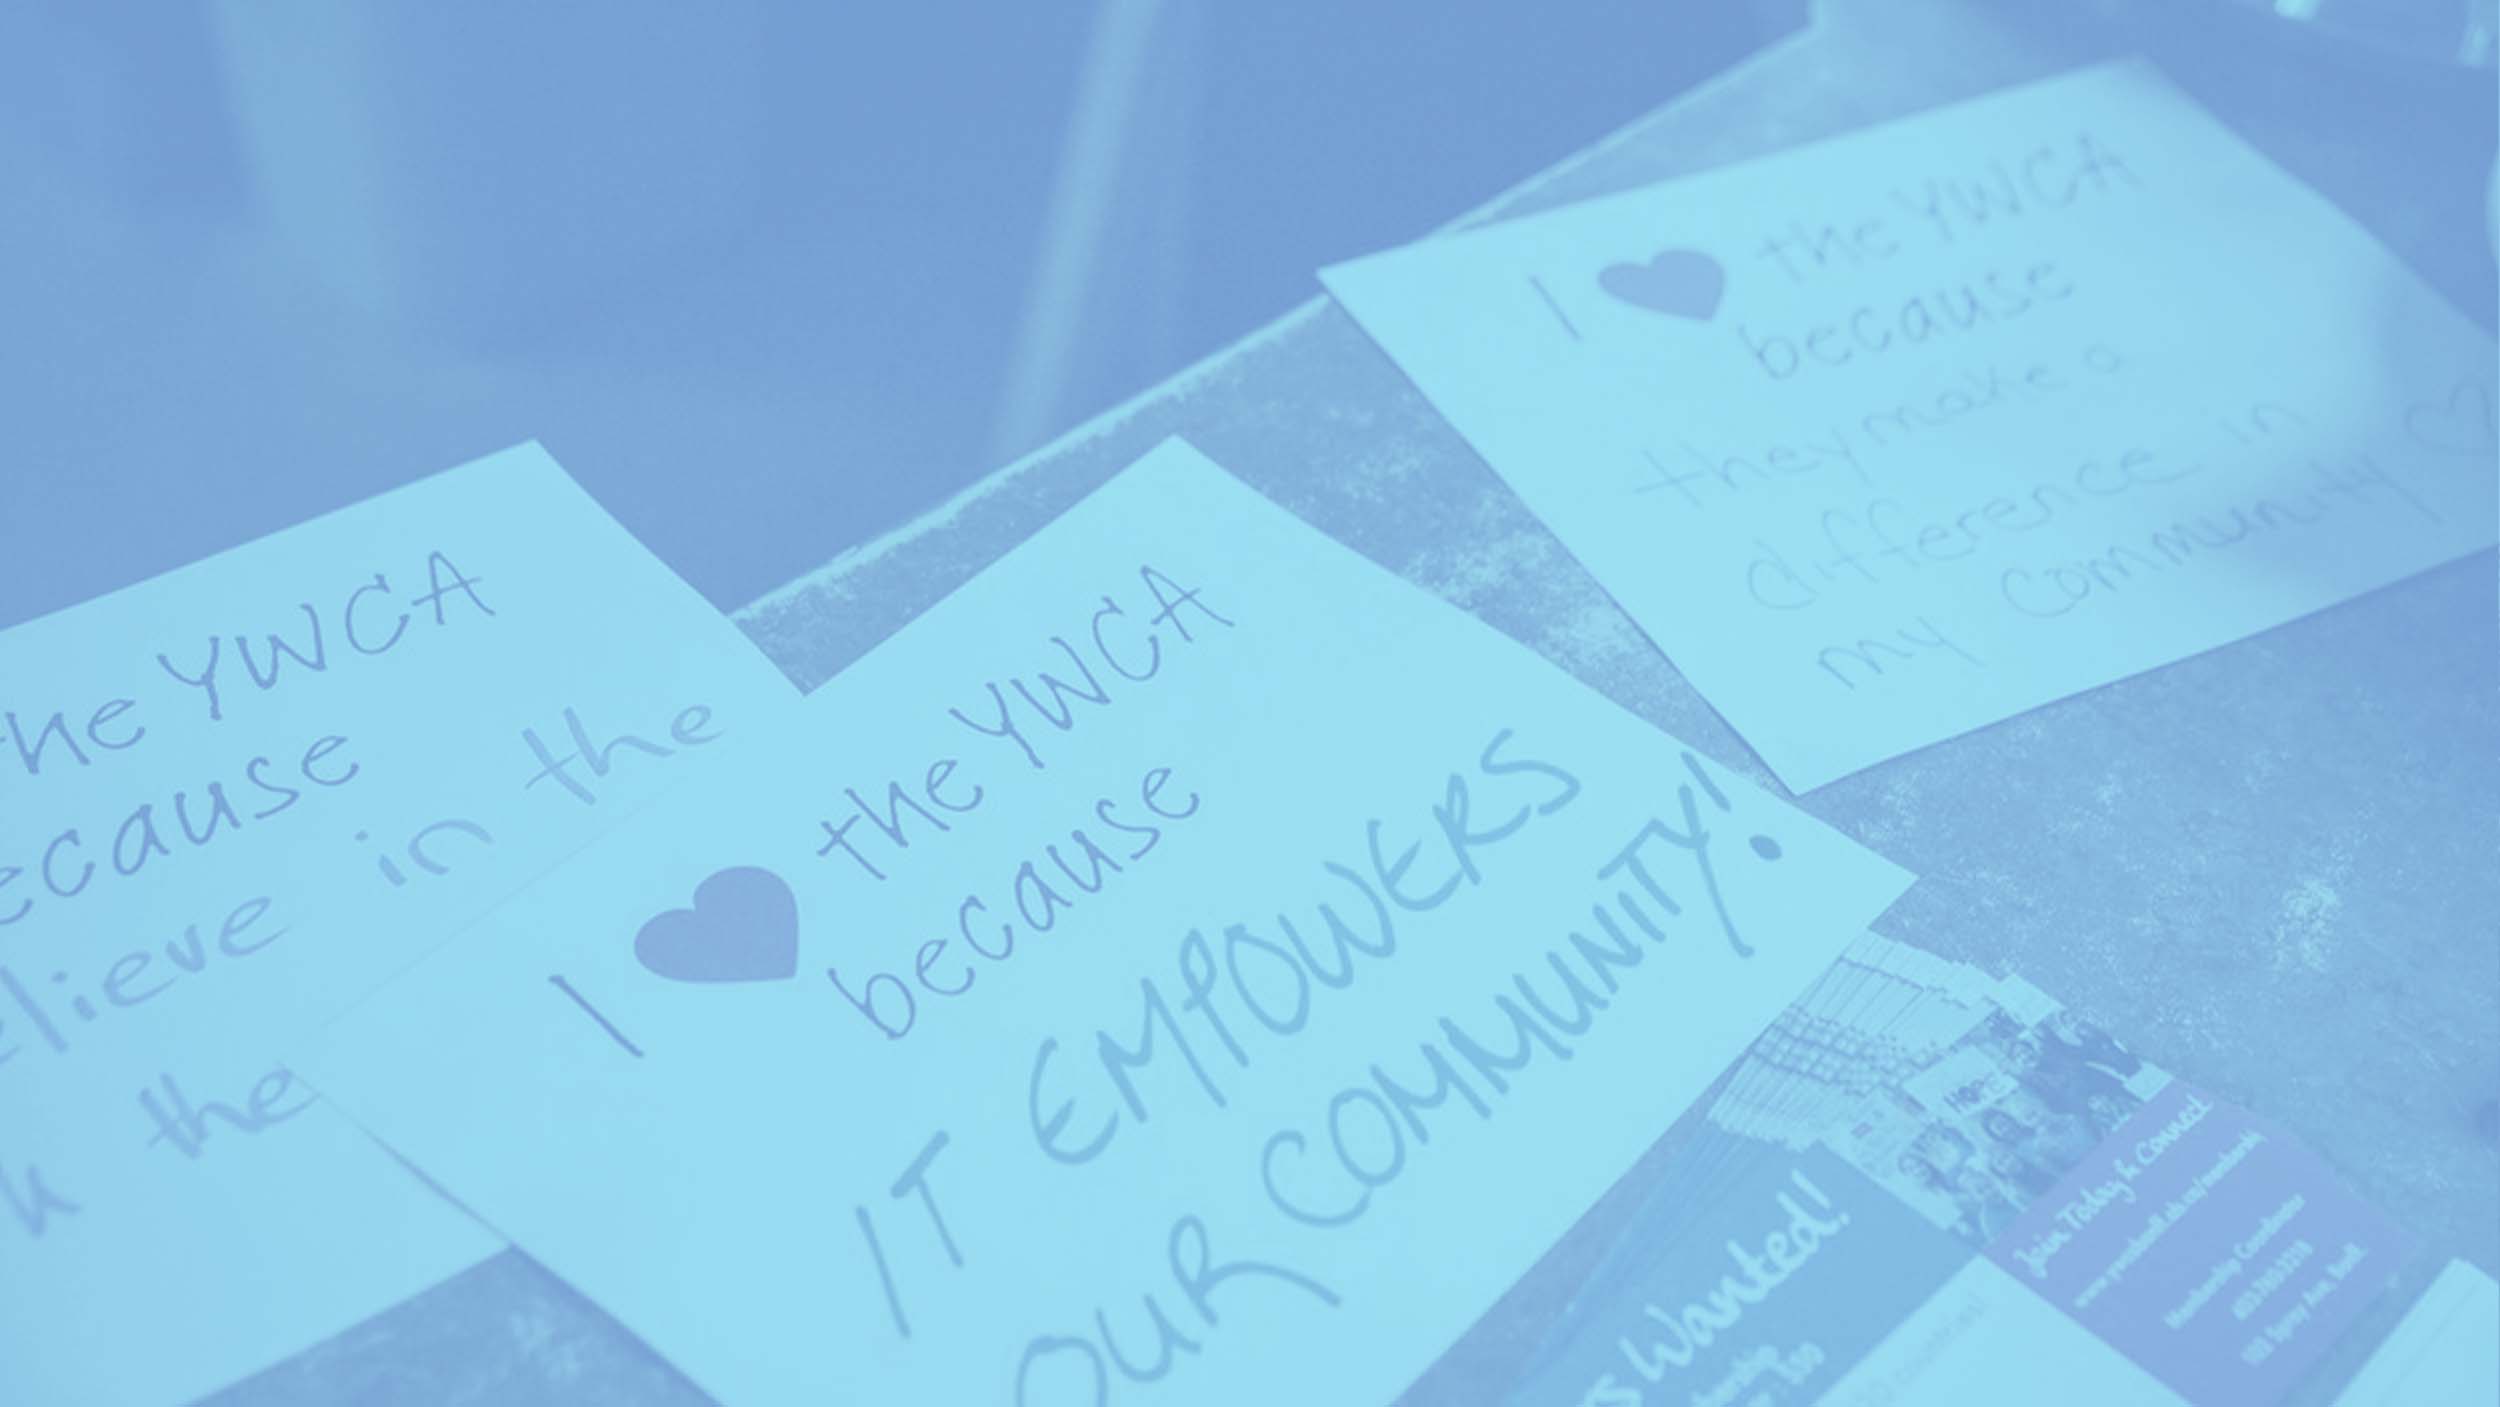 the YWCA
ecause
elieve in the
the
I the YWCA
because
IT EMPOWERS
OUR COMMUNITY!
I the YWCA
because
they make a
difference in
my community
HOPE
Join Today & Connect
Membership Coordinator
Wanted!